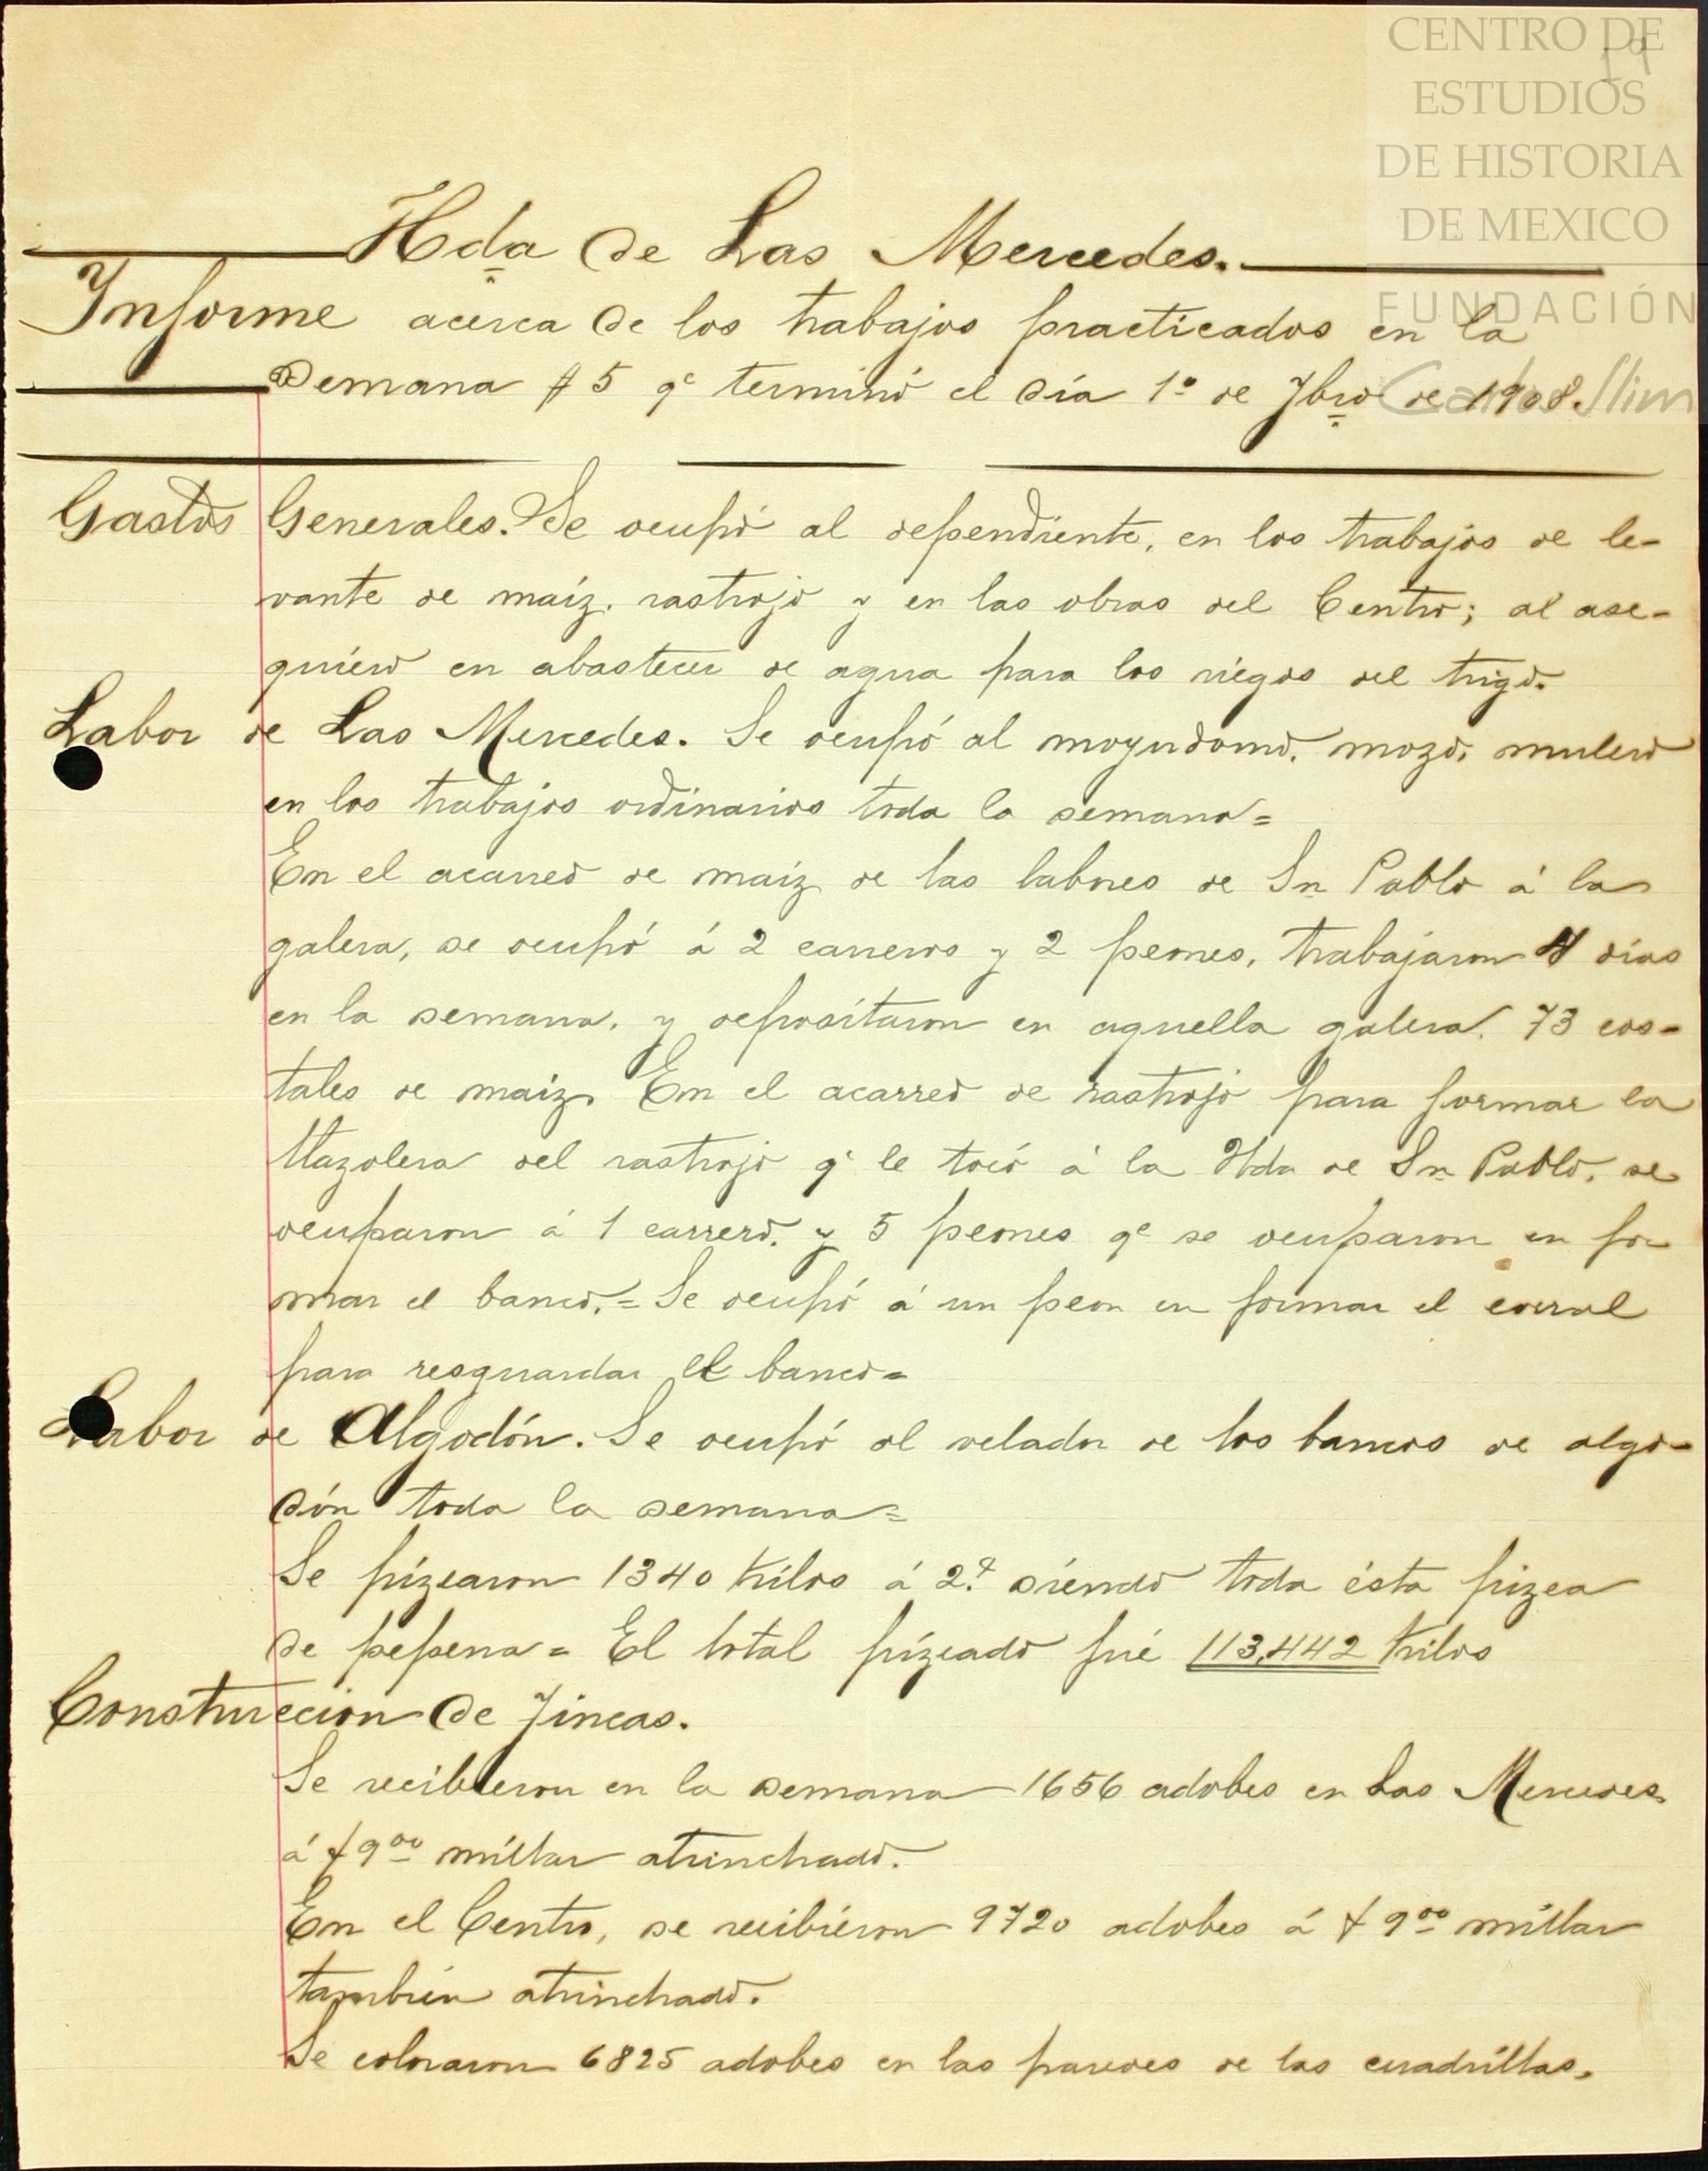 CENTRO DE
ESTUDIOS
DE HISTORIA
DE MEXICO
FUNDACIÓN
Carlos Slim
19
Hda de Las Mercedes.
Informe acerca de los trabajos practicados en la
Semana # 5 qe terminó el día 1º de Fbro de 1908.
Gastos Generales. Se ocupó al dependiente, en los trabajos de le-
vante de maíz, rastrojo y en las obras del Centro; al ase-
quiero en abastecer de agua para los riegos del trigo.
Labor de Las Mercedes. Se ocupó al moyudomo, mozo, mulero
en los trabajos ordinarios toda la semana=
En el acarreo de maiz de las labores de Sn Pablo á la
galera, se ocupó á 2 carreros y 2 peones, trabajaron 4 días
en la semana, y depositaron en aquella galera. 73 cos-
tales de maiz. En el acarreo de rastrojo para formar la
tlazolera del rastrojo qe le tocó á la Hda de Sn Pablo, se
ocuparon á 1 carrero, y 5 peones qe se ocuparon en for
mar el banco,= Se ocupó á un peon en formar el corral
para resguardar el banco=
Labor de Algodón. Se ocupó al velador de los bancos de algo-
dón toda la semana=
Se pizcaron 1340 kilos á 2¢ siendo toda ésta pizca
de pepena= El total pizcado fué 113,442 kilos
Construccion de Fincas.
Se recibieron en la semana 1656 adobes en Las Mercedes
á $9.00 millar atrinchado.
En el Centro, se recibieron 9720 adobes á $9.00 millar
también atrinchado.
Se colocaron 6825 adobes en las paredes de las cuadrillas.